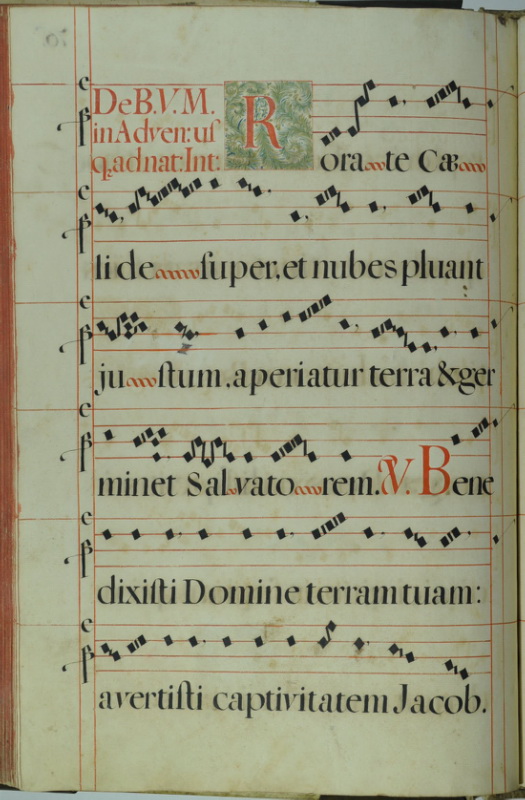 De B. V. M.
in Adven: uſ
q, ad nat: Int:
R
ora te Cæ
li de ſuper, et nubes pluant
ju ſtum, aperiatur terra & ger
minet Sal vato rem. V. Bene
dixiſti Domine terram tuam:
avertiſti captivitatem Jacob.